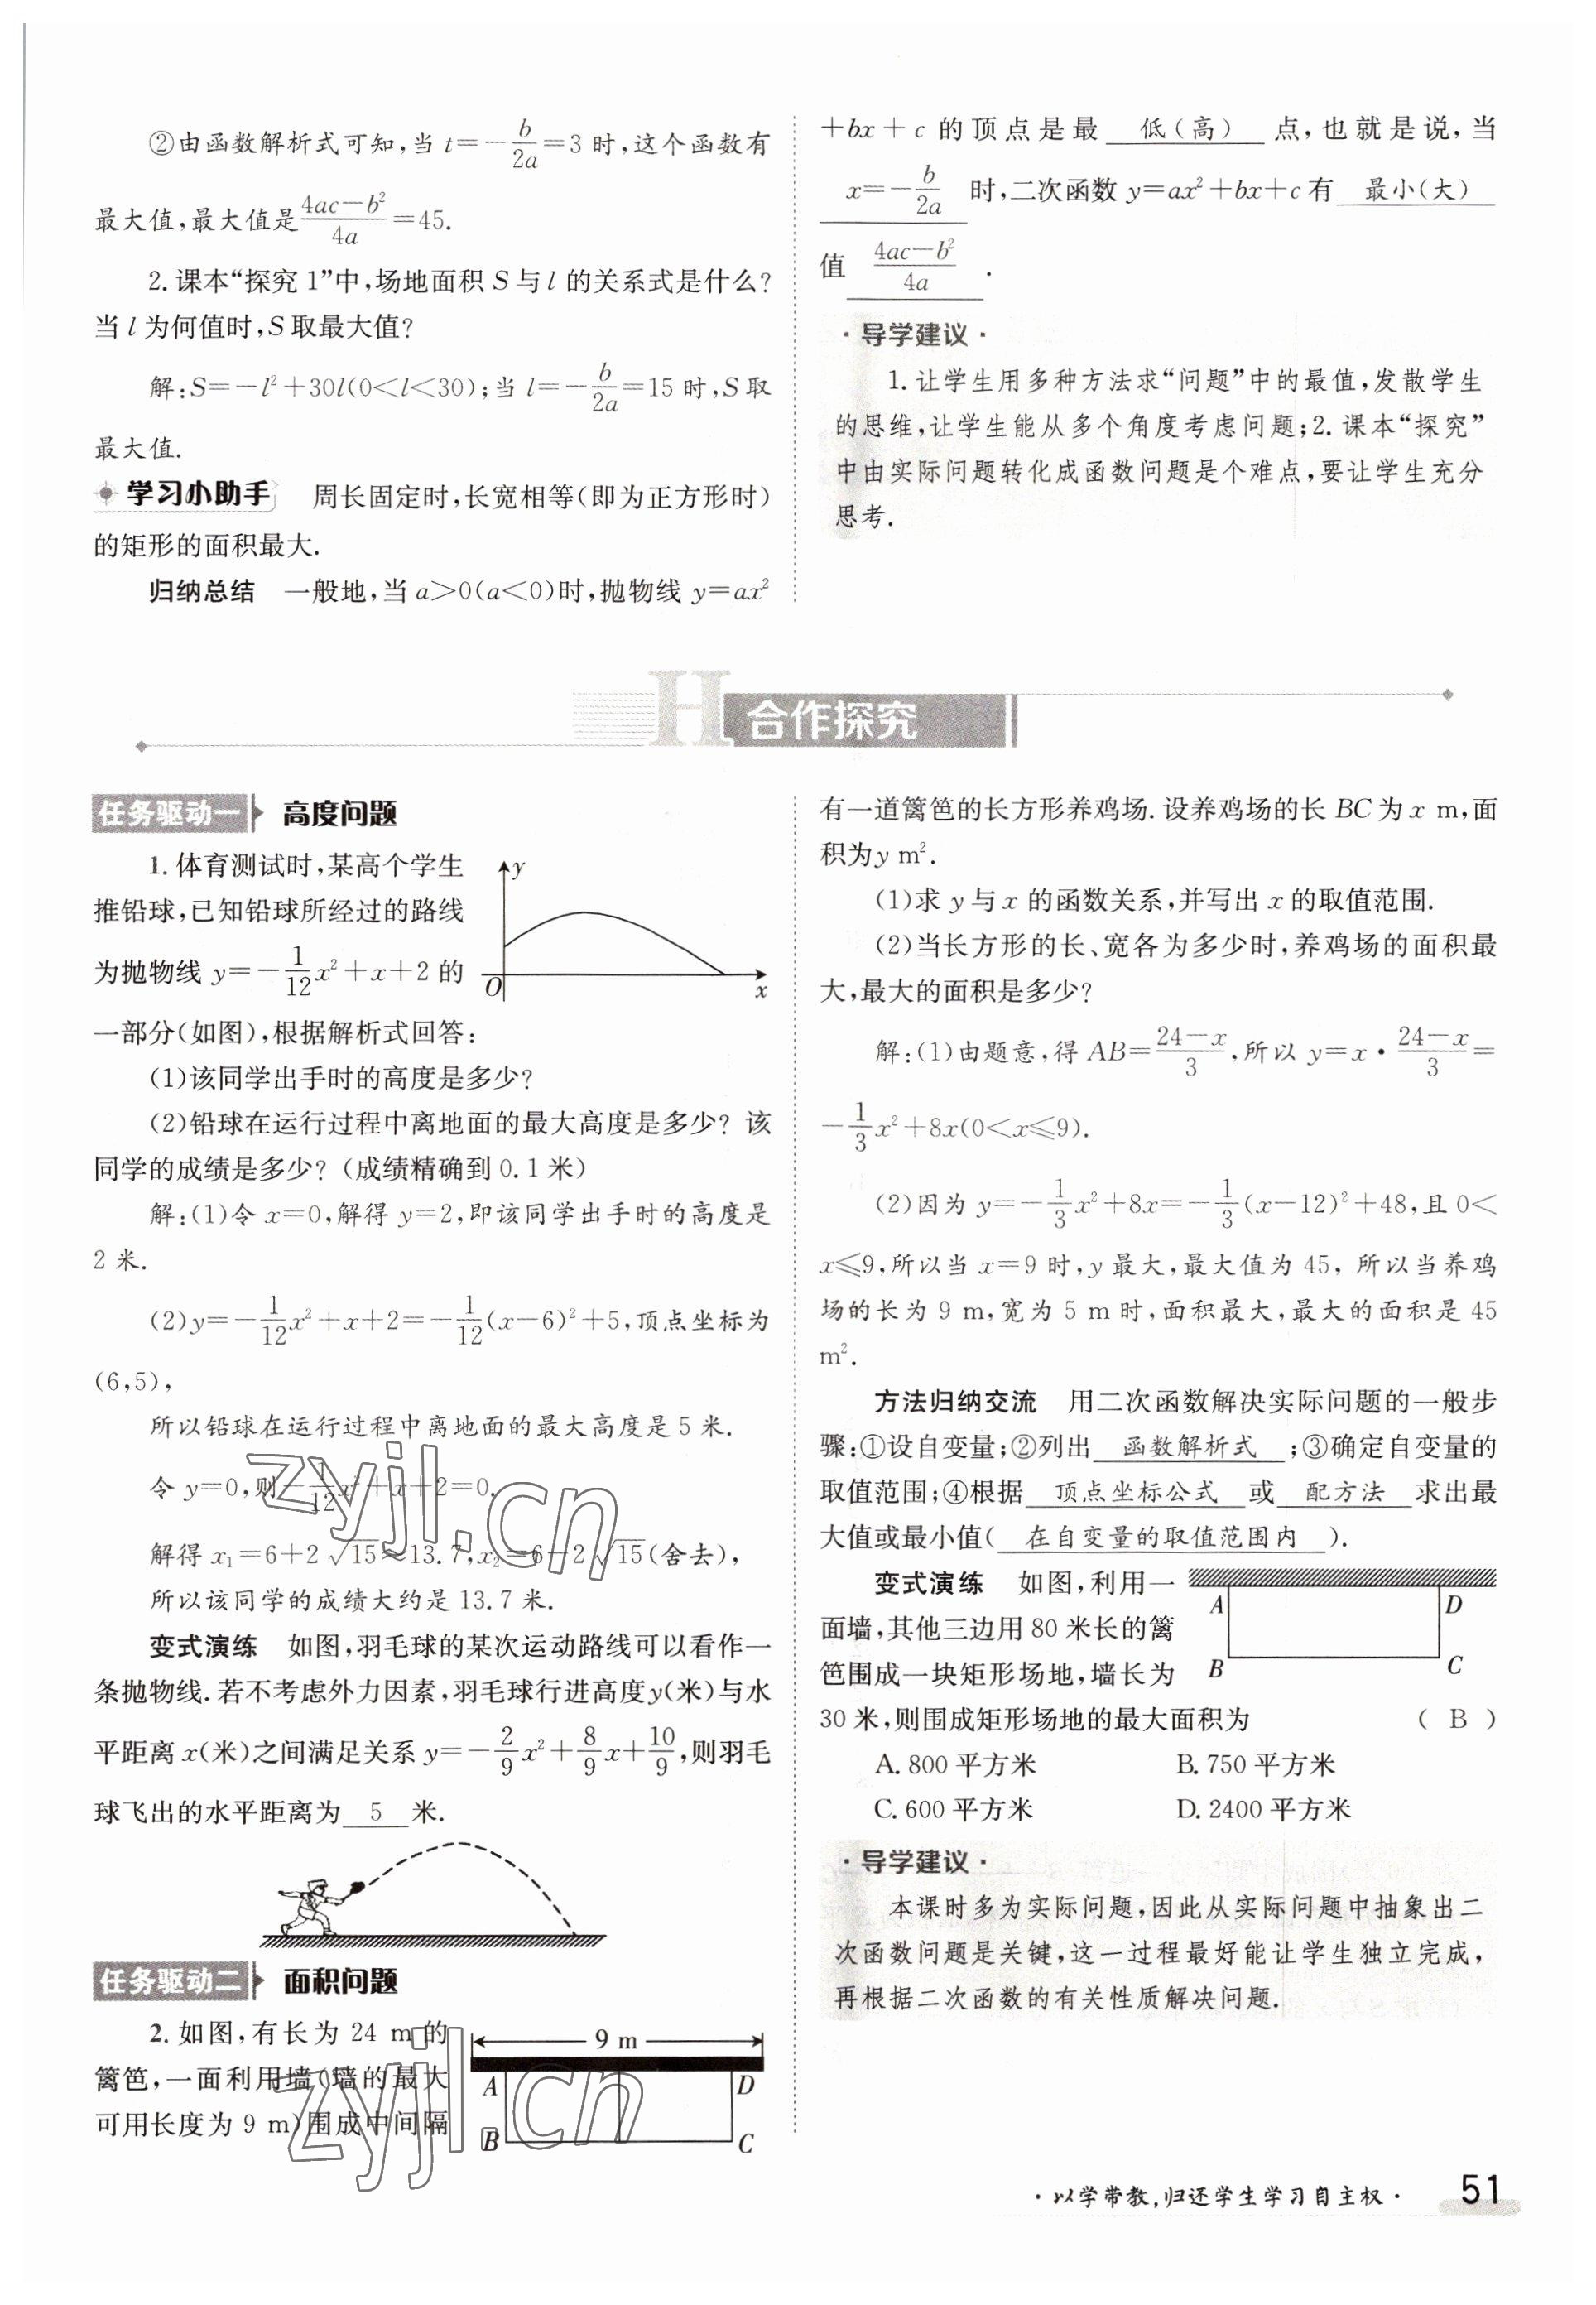 ②由函数解析式可知,当 t=-b/2a=3 时,这个函数有
最大值,最大值是(4ac-b²)/4a=45.
2.课本“探究 1”中,场地面积 S 与 l 的关系式是什么?
当 l 为何值时,S 取最大值?
解:S=-l²+30l(0<l<30);当 l=-b/2a=15 时,S 取
最大值.
学习小助手 周长固定时,长宽相等(即为正方形时)
的矩形的面积最大.
归纳总结 一般地,当 a>0(a<0)时,抛物线 y=ax²
+bx+c 的顶点是最 低(高) 点,也就是说,当
x=-b/2a 时,二次函数 y=ax²+bx+c 有 最小(大)
值 (4ac-b²)/4a .
·导学建议·
1.让学生用多种方法求“问题”中的最值,发散学生
的思维,让学生能从多个角度考虑问题;2.课本“探究”
中由实际问题转化成函数问题是个难点,要让学生充分
思考.
H 合作探究
任务驱动一 高度问题
1.体育测试时,某高个学生
推铅球,已知铅球所经过的路线
为抛物线 y=-1/12x²+x+2 的
y
O
x
一部分(如图),根据解析式回答:
(1)该同学出手时的高度是多少?
(2)铅球在运行过程中离地面的最大高度是多少? 该
同学的成绩是多少?(成绩精确到 0.1 米)
解:(1)令 x=0,解得 y=2,即该同学出手时的高度是
2 米.
(2)y=-1/12x²+x+2=-1/12(x-6)²+5,顶点坐标为
(6,5),
所以铅球在运行过程中离地面的最大高度是 5 米.
令 y=0,则-1/12x²+x+2=0,
解得 x₁=6+2√15≈13.7,x₂=6-2√15(舍去),
所以该同学的成绩大约是 13.7 米.
变式演练 如图,羽毛球的某次运动路线可以看作一
条抛物线.若不考虑外力因素,羽毛球行进高度y(米)与水
平距离 x(米)之间满足关系 y=-2/9x²+8/9x+10/9,则羽毛
球飞出的水平距离为 5 米.
任务驱动二 面积问题
2.如图,有长为 24 m 的
篱笆,一面利用墙(墙的最大
可用长度为 9 m)围成中间隔
9 m
A
D
B
C
有一道篱笆的长方形养鸡场.设养鸡场的长 BC 为 x m,面
积为y m².
(1)求 y 与 x 的函数关系,并写出 x 的取值范围.
(2)当长方形的长、宽各为多少时,养鸡场的面积最
大,最大的面积是多少?
解:(1)由题意,得 AB=(24-x)/3,所以 y=x·(24-x)/3=
-1/3x²+8x(0<x≤9).
(2)因为 y=-1/3x²+8x=-1/3(x-12)²+48,且 0<
x≤9,所以当 x=9 时,y 最大,最大值为 45,所以当养鸡
场的长为 9 m,宽为 5 m 时,面积最大,最大的面积是 45
m².
方法归纳交流 用二次函数解决实际问题的一般步
骤:①设自变量;②列出 函数解析式 ;③确定自变量的
取值范围;④根据 顶点坐标公式 或 配方法 求出最
大值或最小值( 在自变量的取值范围内 ).
变式演练 如图,利用一
面墙,其他三边用 80 米长的篱
笆围成一块矩形场地,墙长为
30 米,则围成矩形场地的最大面积为 ( B )
A
D
B
C
A.800 平方米 B.750 平方米
C.600 平方米 D.2400 平方米
·导学建议·
本课时多为实际问题,因此从实际问题中抽象出二
次函数问题是关键,这一过程最好能让学生独立完成,
再根据二次函数的有关性质解决问题.
·以学带教,归还学生学习自主权· 51
zyjl.cn
zyjl.cn